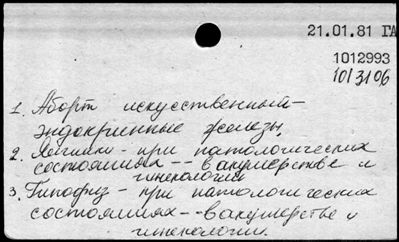 21.01.81 ГА
1012993
1013106
1. Аборт искусственный-
эндокринные железы,
2. - при патологических
состояниях -- в акушерстве и
гинекологии
3. Гипофиз - при патологических
состояниях -- в акушерстве и
гинекологии.